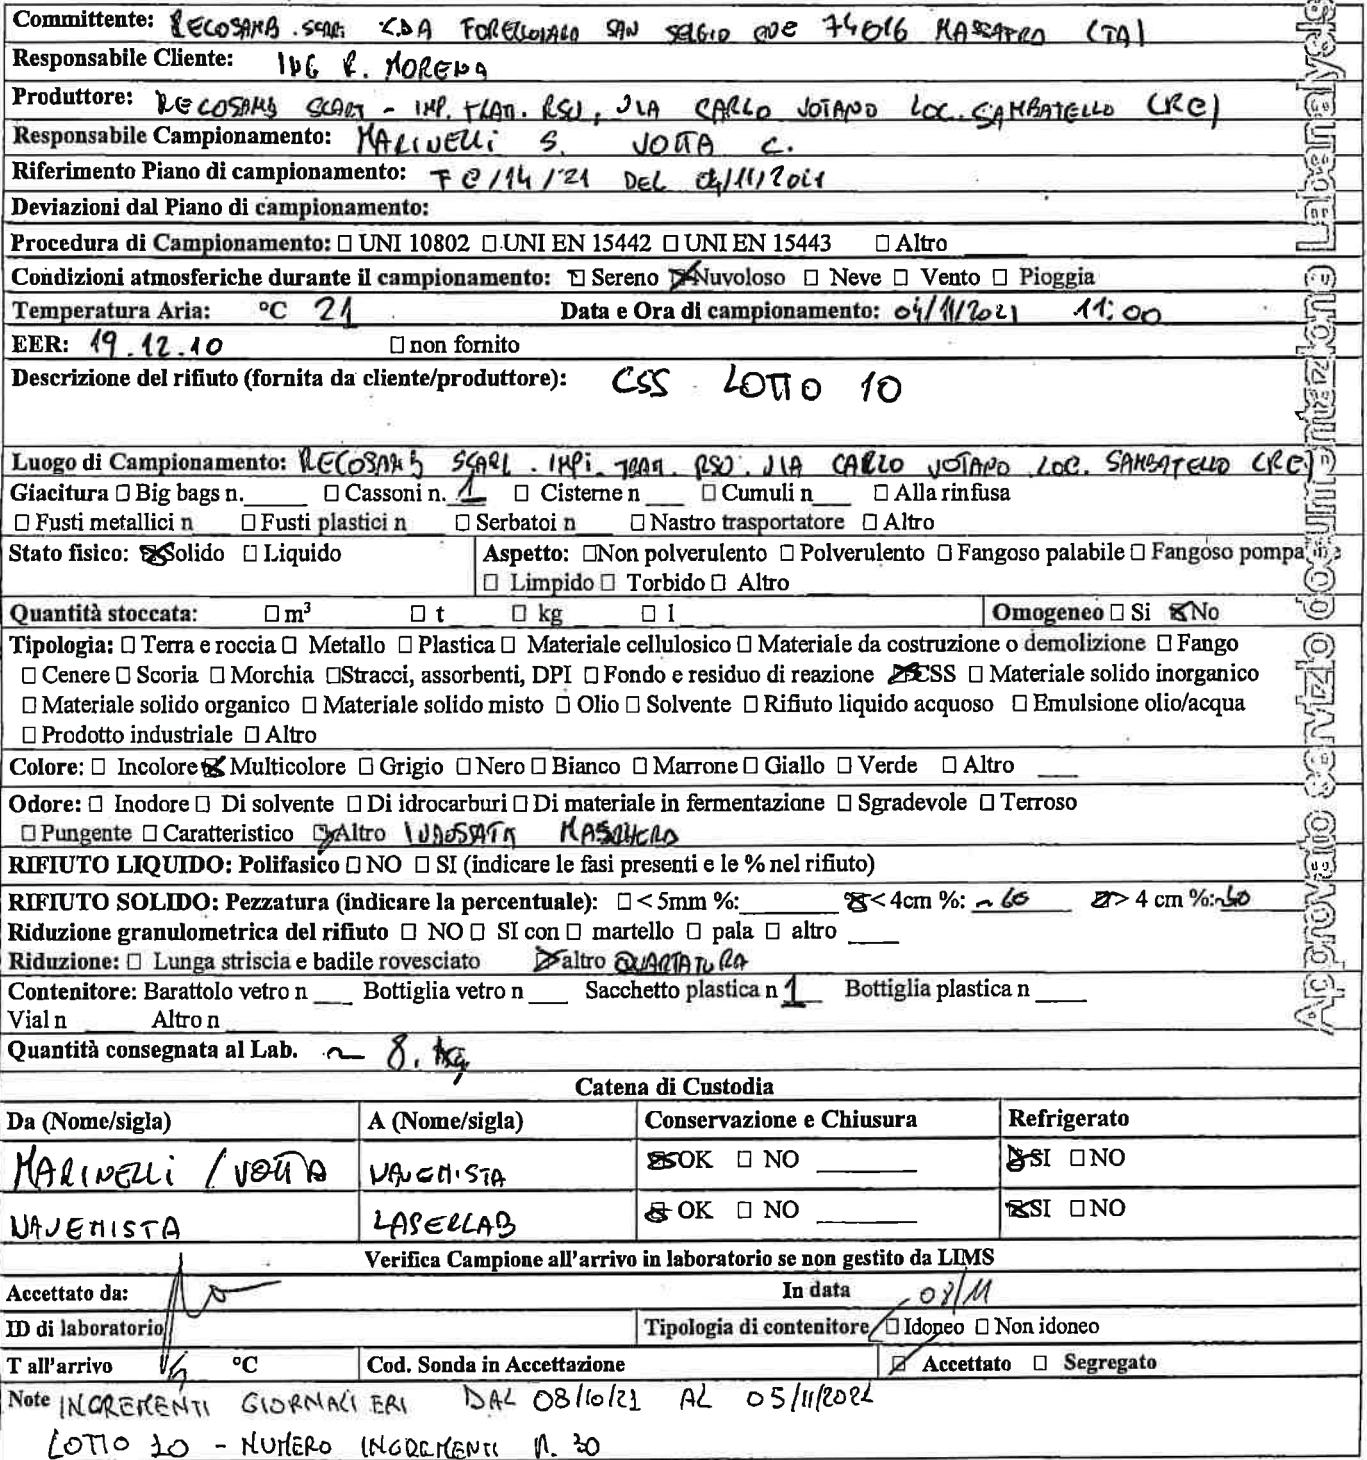 Committente: RECOSAMB. SCARL C.DA FORELLONARO SAN SERGIO 74016 MASSAFRA (TA)
Responsabile Cliente: ING R. MORENA
Produttore: RECOSAMB SCARL - IMP. TRAT. RSU, VIA CARLO VOTANO LOC. SAMBATELLO (RC)
Responsabile Campionamento: MARINELLI S. VOTTA C.
Riferimento Piano di campionamento: /14/21 DEL 04/11/2021
Deviazioni dal Piano di campionamento:
Procedura di Campionamento: □ UNI 10802 □ UNI EN 15442 □ UNI EN 15443 □ Altro
Condizioni atmosferiche durante il campionamento: □ Sereno ☒ Nuvoloso □ Neve □ Vento □ Pioggia
Temperatura Aria: °C 21 Data e Ora di campionamento: 04/11/2021 11:00
EER: 19.12.10 □ non fornito
Descrizione del rifiuto (fornita da cliente/produttore): CSS LOTTO 10
Luogo di Campionamento: RECOSAMB SCARL. IMPI. TRAT. RSU. VIA CARLO VOTANO LOC. SAMBATELLO (RC)
Giacitura □ Big bags n.____ □ Cassoni n. 1 □ Cisterne n___ □ Cumuli n___ □ Alla rinfusa
□ Fusti metallici n □ Fusti plastici n □ Serbatoi n □ Nastro trasportatore □ Altro
Stato fisico: ☒ Solido □ Liquido Aspetto: □Non polverulento □ Polverulento □ Fangoso palabile □ Fangoso pompabile
□ Limpido □ Torbido □ Altro
Quantità stoccata: □ m³ □ t □ kg □ l Omogeneo □ Si ☒ No
Tipologia: □ Terra e roccia □ Metallo □ Plastica □ Materiale cellulosico □ Materiale da costruzione o demolizione □ Fango
□ Cenere □ Scoria □ Morchia □Stracci, assorbenti, DPI □ Fondo e residuo di reazione ☒ CSS □ Materiale solido inorganico
□ Materiale solido organico □ Materiale solido misto □ Olio □ Solvente □ Rifiuto liquido acquoso □ Emulsione olio/acqua
□ Prodotto industriale □ Altro
Colore: □ Incolore ☒ Multicolore □ Grigio □ Nero □ Bianco □ Marrone □ Giallo □ Verde □ Altro ___
Odore: □ Inodore □ Di solvente □ Di idrocarburi □ Di materiale in fermentazione □ Sgradevole □ Terroso
□ Pungente □ Caratteristico ☒ Altro INDOSSATA MASCHERA
RIFIUTO LIQUIDO: Polifasico □ NO □ SI (indicare le fasi presenti e le % nel rifiuto)
RIFIUTO SOLIDO: Pezzatura (indicare la percentuale): □ < 5mm %:______ ☒ < 4cm %: ~ 60 ☒ > 4 cm %:
Riduzione granulometrica del rifiuto □ NO □ SI con □ martello □ pala □ altro ____
Riduzione: □ Lunga striscia e badile rovesciato ☒ altro QUARTATURA
Contenitore: Barattolo vetro n ___ Bottiglia vetro n ___ Sacchetto plastica n 1 Bottiglia plastica n ____
Vial n ____ Altro n ____
Quantità consegnata al Lab. ~ 8. kg
Catena di Custodia
Da (Nome/sigla) A (Nome/sigla) Conservazione e Chiusura Refrigerato
MARINELLI / VOTTA NAVEMISTA ☒ OK □ NO ______ ☒ SI □ NO
NAVEMISTA LASERLAB ☒ OK □ NO ______ ☒ SI □ NO
Verifica Campione all'arrivo in laboratorio se non gestito da LIMS
Accettato da: In data 08/11
ID di laboratorio Tipologia di contenitore ☒ Idoneo □ Non idoneo
T all'arrivo °C Cod. Sonda in Accettazione ☒ Accettato □ Segregato
Note INCREMENTI GIORNALIERI DAL 08/10/21 AL 05/11/2021
LOTTO 10 - NUMERO INCREMENTI N. 30